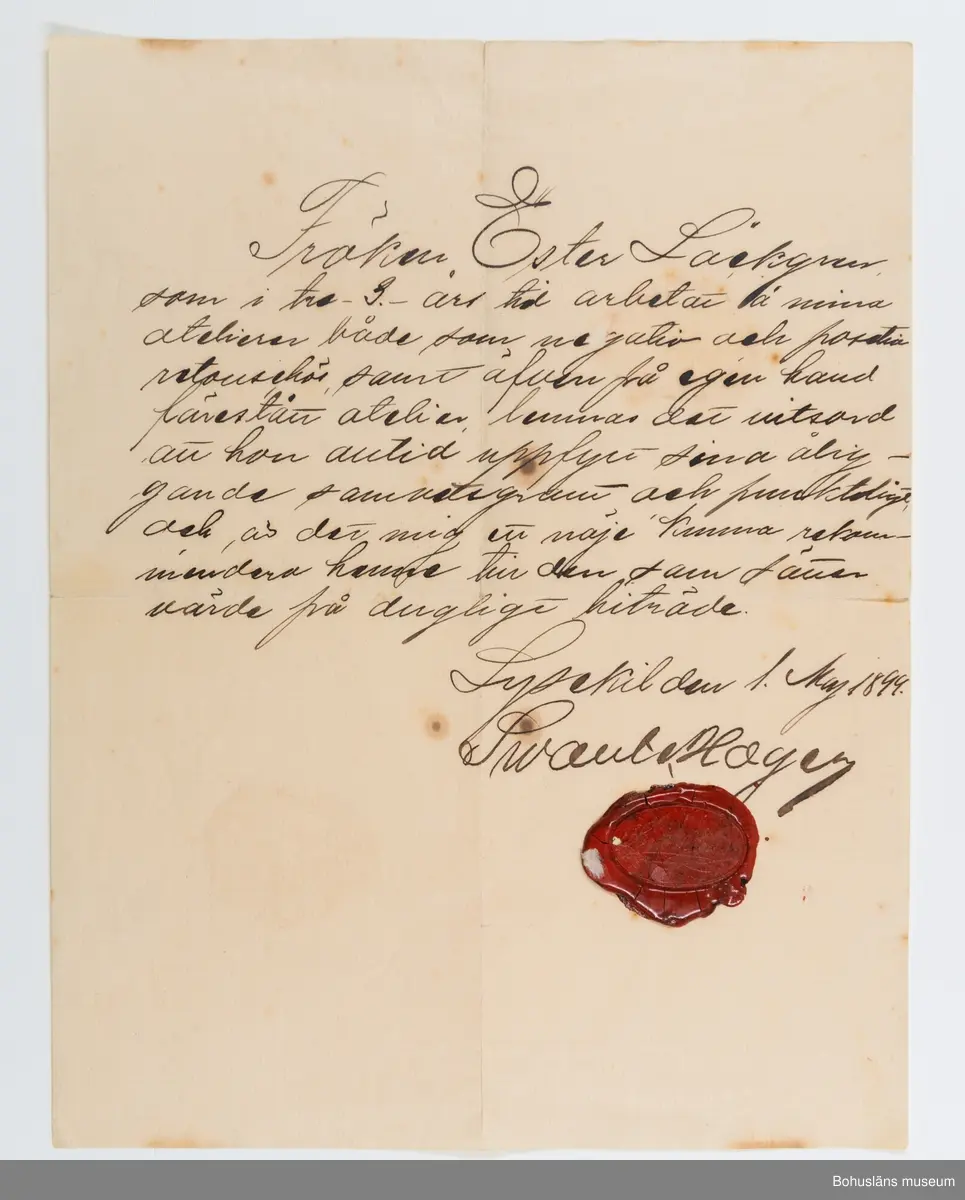 Fröken Ester Löckgren,
som i tre - 3. - års tid arbetat å mina
atelierer både som negativ och positiv
retouschös, samt äfven på egen hand
förestått atelier, lemnas det vitsord
att hon alltid uppfyllt sina ålig-
gande samvetsgrant och punktligt,
och är det mig ett nöje kunna rekom-
mendera henne till den som sätter
värde på dugligt biträde.
Lysekil den 1. Maj 1899.
Swante Hagen
Bohusläns museum